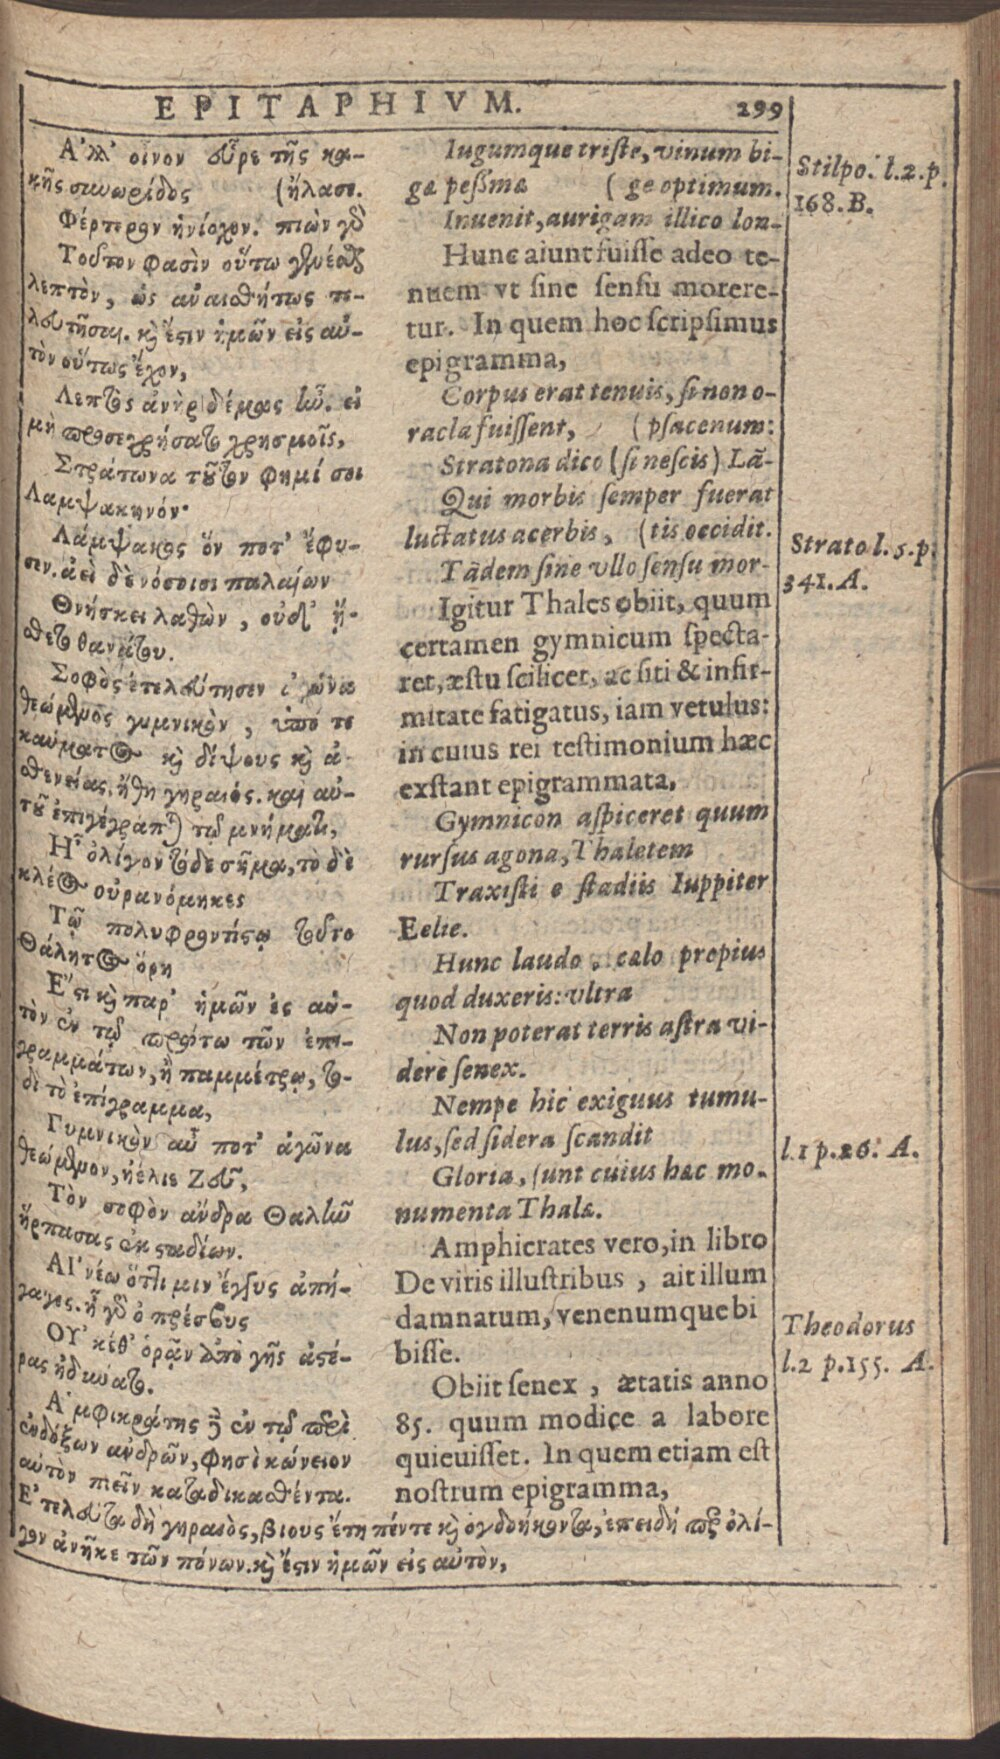 EPITAPHIVM. 299
Ἀλλ' οἶνον εὗρε τῆς κα-
κῆς συνωρίδος (ἤλασε.
Φέρτερον ἡνίοχον. πιὼν γδ
Τοῦτον φασὶν οὕτω γενέσθαι
λεπτὸν, ὡς ἀναισθήτως τε-
λευτῆσαι. κὶ ἔστιν ἡμῶν εἰς αὐ-
τὸν οὕτως ἔχον,
Λεπτὸς ἀνὴρ δέμας ἦν. εἰ
μὴ προσεχρήσατο χρησμοῖς,
Στράτωνα τοῦτον φημί σοι
Λαμψακηνόν·
Λάμψακος ὅν ποτ' ἔφυ-
σιν. ἀεὶ δὲ νόσοισι παλαίων
Θνήσκει λαθὼν, οὐδ' ᾔ-
σθετο θανάτου.
Σοφὸς ἐτελεύτησεν ἀγῶνα
θεώμενος γυμνικὸν, ὑπό τε
καύματος κὶ δίψους κὶ ἀ-
σθενείας. ἤδη γηραιός. καὶ αὐ-
τοῦ ἐπιγέγραπται τῷ μνήματι,
Ἦ ὀλίγον τόδε σῆμα, τὸ δὲ
κλέος οὐρανόμηκες
Τῷ πολυφροντίστῳ τοῦτο
Θάλητος ὅρη
Ἔστι κὶ παρ' ἡμῶν ἐς αὐ-
τὸν ἐν τῷ πρώτῳ τῶν ἐπι-
γραμμάτων, ἢ παμμέτρῳ, τό-
δε τὸ ἐπίγραμμα,
Γυμνικὸν αὖ ποτ' ἀγῶνα
θεώμενον, ἠέλιε Ζεῦ,
Τὸν σοφὸν ἄνδρα Θαλῆν
ἥρπασας ἐκ σταδίων.
Αἰνέω ὅττι μιν ἐγγὺς ἀπή-
γαγες. ἦ γδ ὁ πρέσβυς
Οὐκέθ' ὁρᾷν ἀπὸ γῆς ἀστέ-
ρας ἠδύνατο.
Ἀμφικράτης δὲ ἐν τῷ περὶ
ἐνδόξων ἀνδρῶν, φησὶ κώνειον
αὐτὸν πιεῖν καταδικασθέντα.
Ἐτελεύτα δὴ γηραιὸς, βιοὺς ἔτη πέντε κὶ ὀγδοήκοντα, ἐπειδὴ πρὸς ὀλί-
γον ἀνῆκε τῶν πόνων. κὶ ἔστιν ἡμῶν εἰς αὐτὸν,
Iugumque triste, vinum bi-
gæ peßimæ (ge optimum.
Inuenit, aurigam illico lon-
Hunc aiunt fuisse adeo te-
nuem vt sine sensu morere-
tur. In quem hoc scripsimus
epigramma,
Corpus erat tenuis, si non o-
racla fuissent, (psacenum:
Stratona dico (si nescis) Lã-
Qui morbis semper fuerat
luctatus acerbis, (tis occidit.
Tãdem sine vllo sensu mor-
Igitur Thales obiit, quum
certamen gymnicum specta-
ret, æstu scilicet, ac siti & infir-
mitate fatigatus, iam vetulus:
in cuius rei testimonium hæc
exstant epigrammata,
Gymnicon aspiceret quum
rursus agona, Thaletem
Traxisti e stadiis Iuppiter
Eelie.
Hunc laudo, cælo propius
quod duxeris: vltra
Non poterat terris astra vi-
dere senex.
Nempe hic exiguus tumu-
lus, sed sidera scandit
Gloria, sunt cuius hæc mo-
numenta Thalæ.
Amphicrates vero, in libro
De viris illustribus, ait illum
damnatum, venenumque bi
bisse.
Obiit senex, ætatis anno
85. quum modice a labore
quieuisset. In quem etiam est
nostrum epigramma,
Stilpo. l.2.p.
168.B.
Strato l.5.p.
341.A.
l.1 p.26. A.
Theodorus
l.2 p.155. A.